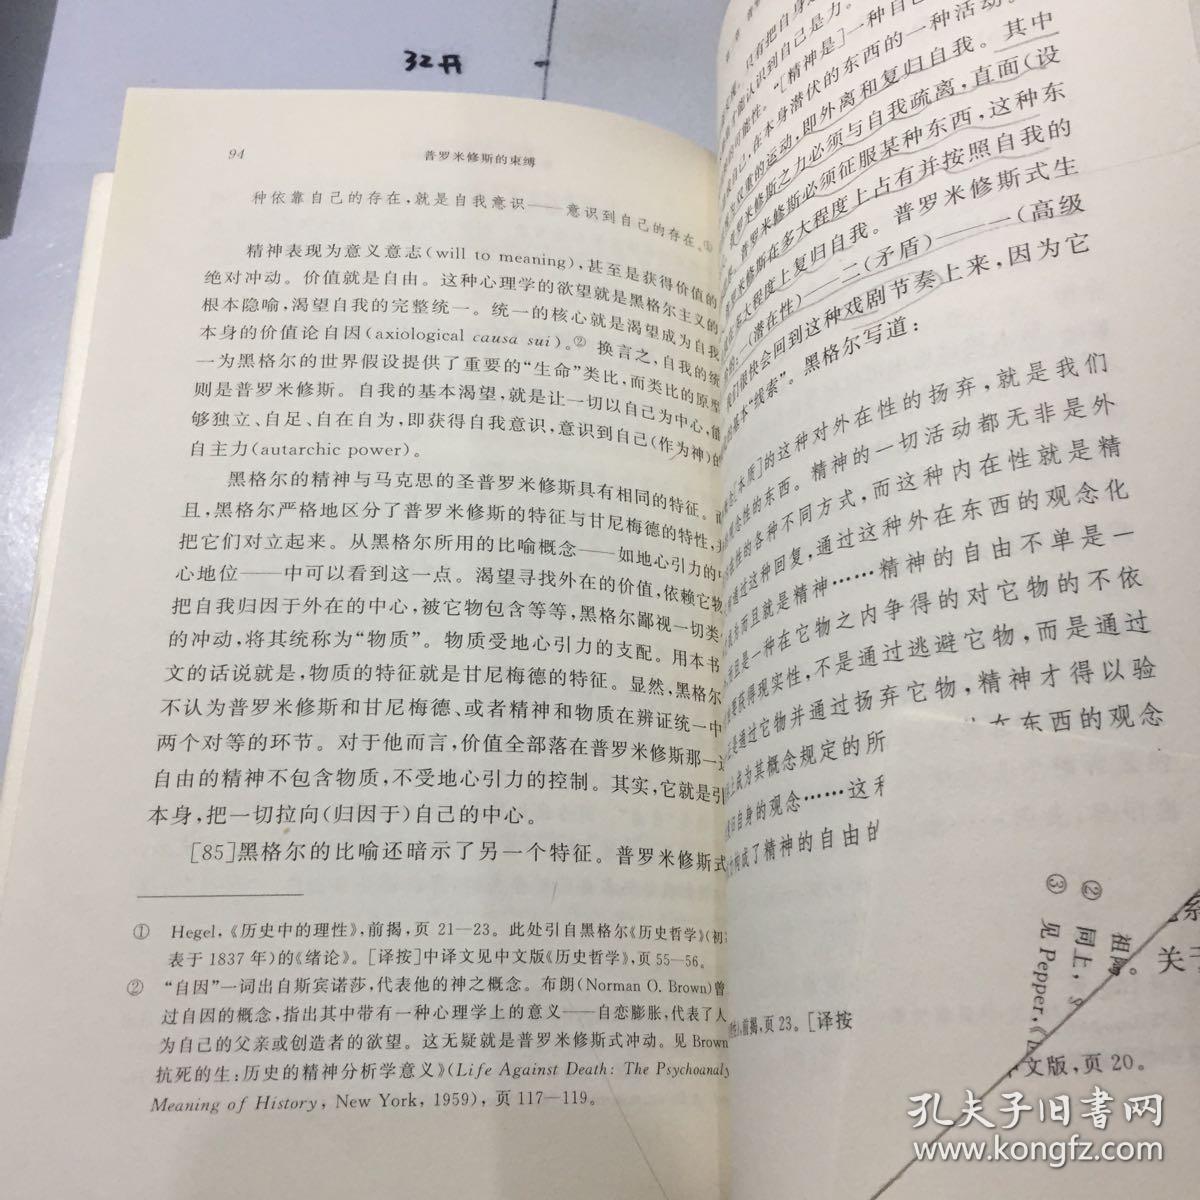 32开
94
普罗米修斯的束缚
种依靠自己的存在，就是自我意识——意识到自己的存在。①
精神表现为意义意志(will to meaning)，甚至是获得价值的
绝对冲动。价值就是自由。这种心理学的欲望就是黑格尔主义的
根本隐喻，渴望自我的完整统一。统一的核心就是渴望成为自我
本身的价值论自因(axiological causa sui)。② 换言之，自我的统
一为黑格尔的世界假设提供了重要的“生命”类比，而类比的原型
则是普罗米修斯。自我的基本渴望，就是让一切以自己为中心，能
够独立、自足、自在自为，即获得自我意识，意识到自己(作为神)的
自主力(autarchic power)。
黑格尔的精神与马克思的圣普罗米修斯具有相同的特征。而
且，黑格尔严格地区分了普罗米修斯的特征与甘尼梅德的特性，
把它们对立起来。从黑格尔所用的比喻概念——如地心引力的中
心地位——中可以看到这一点。渴望寻找外在的价值，依赖它物
把自我归因于外在的中心，被它物包含等等，黑格尔鄙视一切类
的冲动，将其统称为“物质”。物质受地心引力的支配。用本书
文的话说就是，物质的特征就是甘尼梅德的特征。显然，黑格尔
不认为普罗米修斯和甘尼梅德、或者精神和物质在辨证统一中
两个对等的环节。对于他而言，价值全部落在普罗米修斯那一边
自由的精神不包含物质，不受地心引力的控制。其实，它就是引
本身，把一切拉向(归因于)自己的中心。
[85]黑格尔的比喻还暗示了另一个特征。普罗米修斯式
① Hegel，《历史中的理性》，前揭，页 21—23。此处引自黑格尔《历史哲学》(初
表于 1837 年)的《绪论》。[译按]中译文见中文版《历史哲学》，页 55—56。
② “自因”一词出自斯宾诺莎，代表他的神之概念。布朗(Norman O. Brown)曾
过自因的概念，指出其中带有一种心理学上的意义——自恋膨胀，代表了人
为自己的父亲或创造者的欲望。这无疑就是普罗米修斯式冲动。见 Brown
抗死的生：历史的精神分析学意义》(Life Against Death: The Psychoanaly
Meaning of History, New York, 1959)，页 117—119。
只有把自身
才能认识到自己是力。
可能性。“[精神是]一种自己
自己，在本身潜伏的东西的一种活动。
双重的运动，即外离和复归自我。其中
普罗米修斯之力必须与自我疏离，直面(设
普罗米修斯必须征服某种东西，这种东
罗米修斯在多大程度上占有并按照自我的
大程度上复归自我。普罗米修斯式生
一(潜在性)——二(矛盾)——一(高级
我们很快会回到这种戏剧节奏上来，因为它
的基本“线索”。黑格尔写道：
[本质]的这种对外在性的扬弃，就是我们
观念性的东西。精神的一切活动都无非是外
在性的各种不同方式，而这种内在性就是精
通过这种回复，通过这种外在东西的观念化
成为而且就是精神……精神的自由不单是一
而且是一种在它物之内争得的对它物的不依
要获得现实性，不是通过逃避它物，而是通过
是通过它物并通过扬弃它物，精神才得以验
上成为其概念规定的所
在东西的观念
自身的观念……这
构成了精神的自由的
前揭，页 23。[译按
② 同上，
③ 见 Pepper，
关于
文版，页 20。
孔夫子旧书网
www.kongfz.com